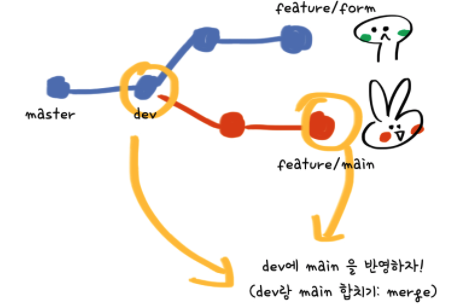 feature/form
master
dev
feature/main
dev에 main 을 반영하자!
(dev랑 main 합치기: merge)